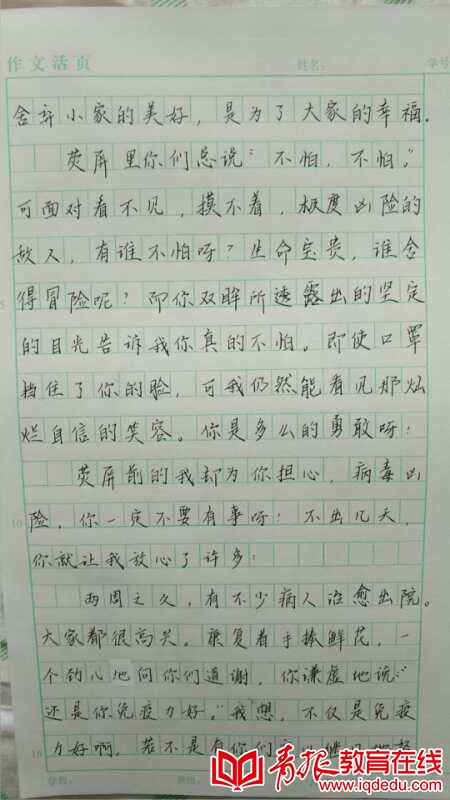 作文活页 姓名： 学号
舍弃小家的美好，是为了大家的幸福。
荧屏里你们总说“不怕，不怕。”
可面对看不见，摸不着，极度凶险的
敌人，有谁不怕呀？生命宝贵，谁舍
得冒险呢？即你双眸所透露出的坚定
的目光告诉我你真的不怕。即使口罩
挡住了你的脸，可我仍然能看见那灿
烂自信的笑容。你是多么的勇敢呀！
荧屏前的我却为你担心，病毒凶
险，你一定不要有事呀！不出几天，
你就让我放心了许多！
两周之久，有不少病人治愈出院。
大家都很高兴。康复者手捧鲜花，一
个劲儿地向你们道谢，你谦虚地说：“
还是你免疫力好。”我想，不仅是免疫
力好啊，若不是有你们
5
10
15
学校：
青报教育在线
www.iqdedu.com